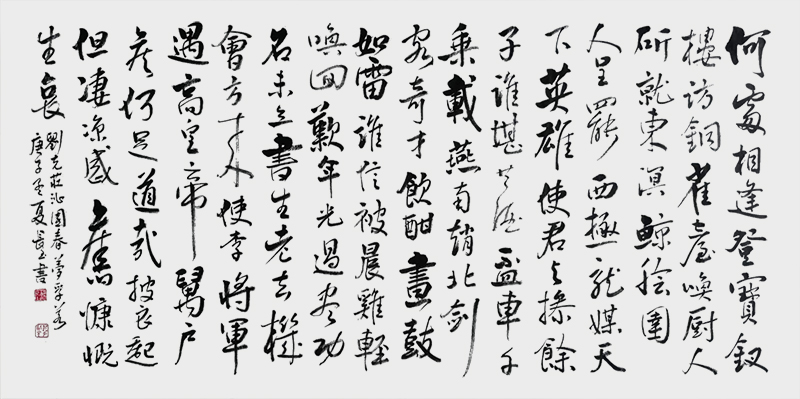 何處相逢登寶釵
樓訪銅雀臺喚廚人
斫就東溟鯨膾圉
人呈罷西極龍媒天
下英雄使君與操餘
子誰堪共酒盃車千
乘載燕南趙北劍
客奇才飲酣畫鼓
如雷誰信被晨雞輕
喚回歎年光過盡功
名未立書生老去機
會方來使李將軍
遇高皇帝萬戶
侯何足道哉披衣起
但淒涼感舊慷慨
生哀
劉克莊沁園春夢孚若
庚子孟夏書